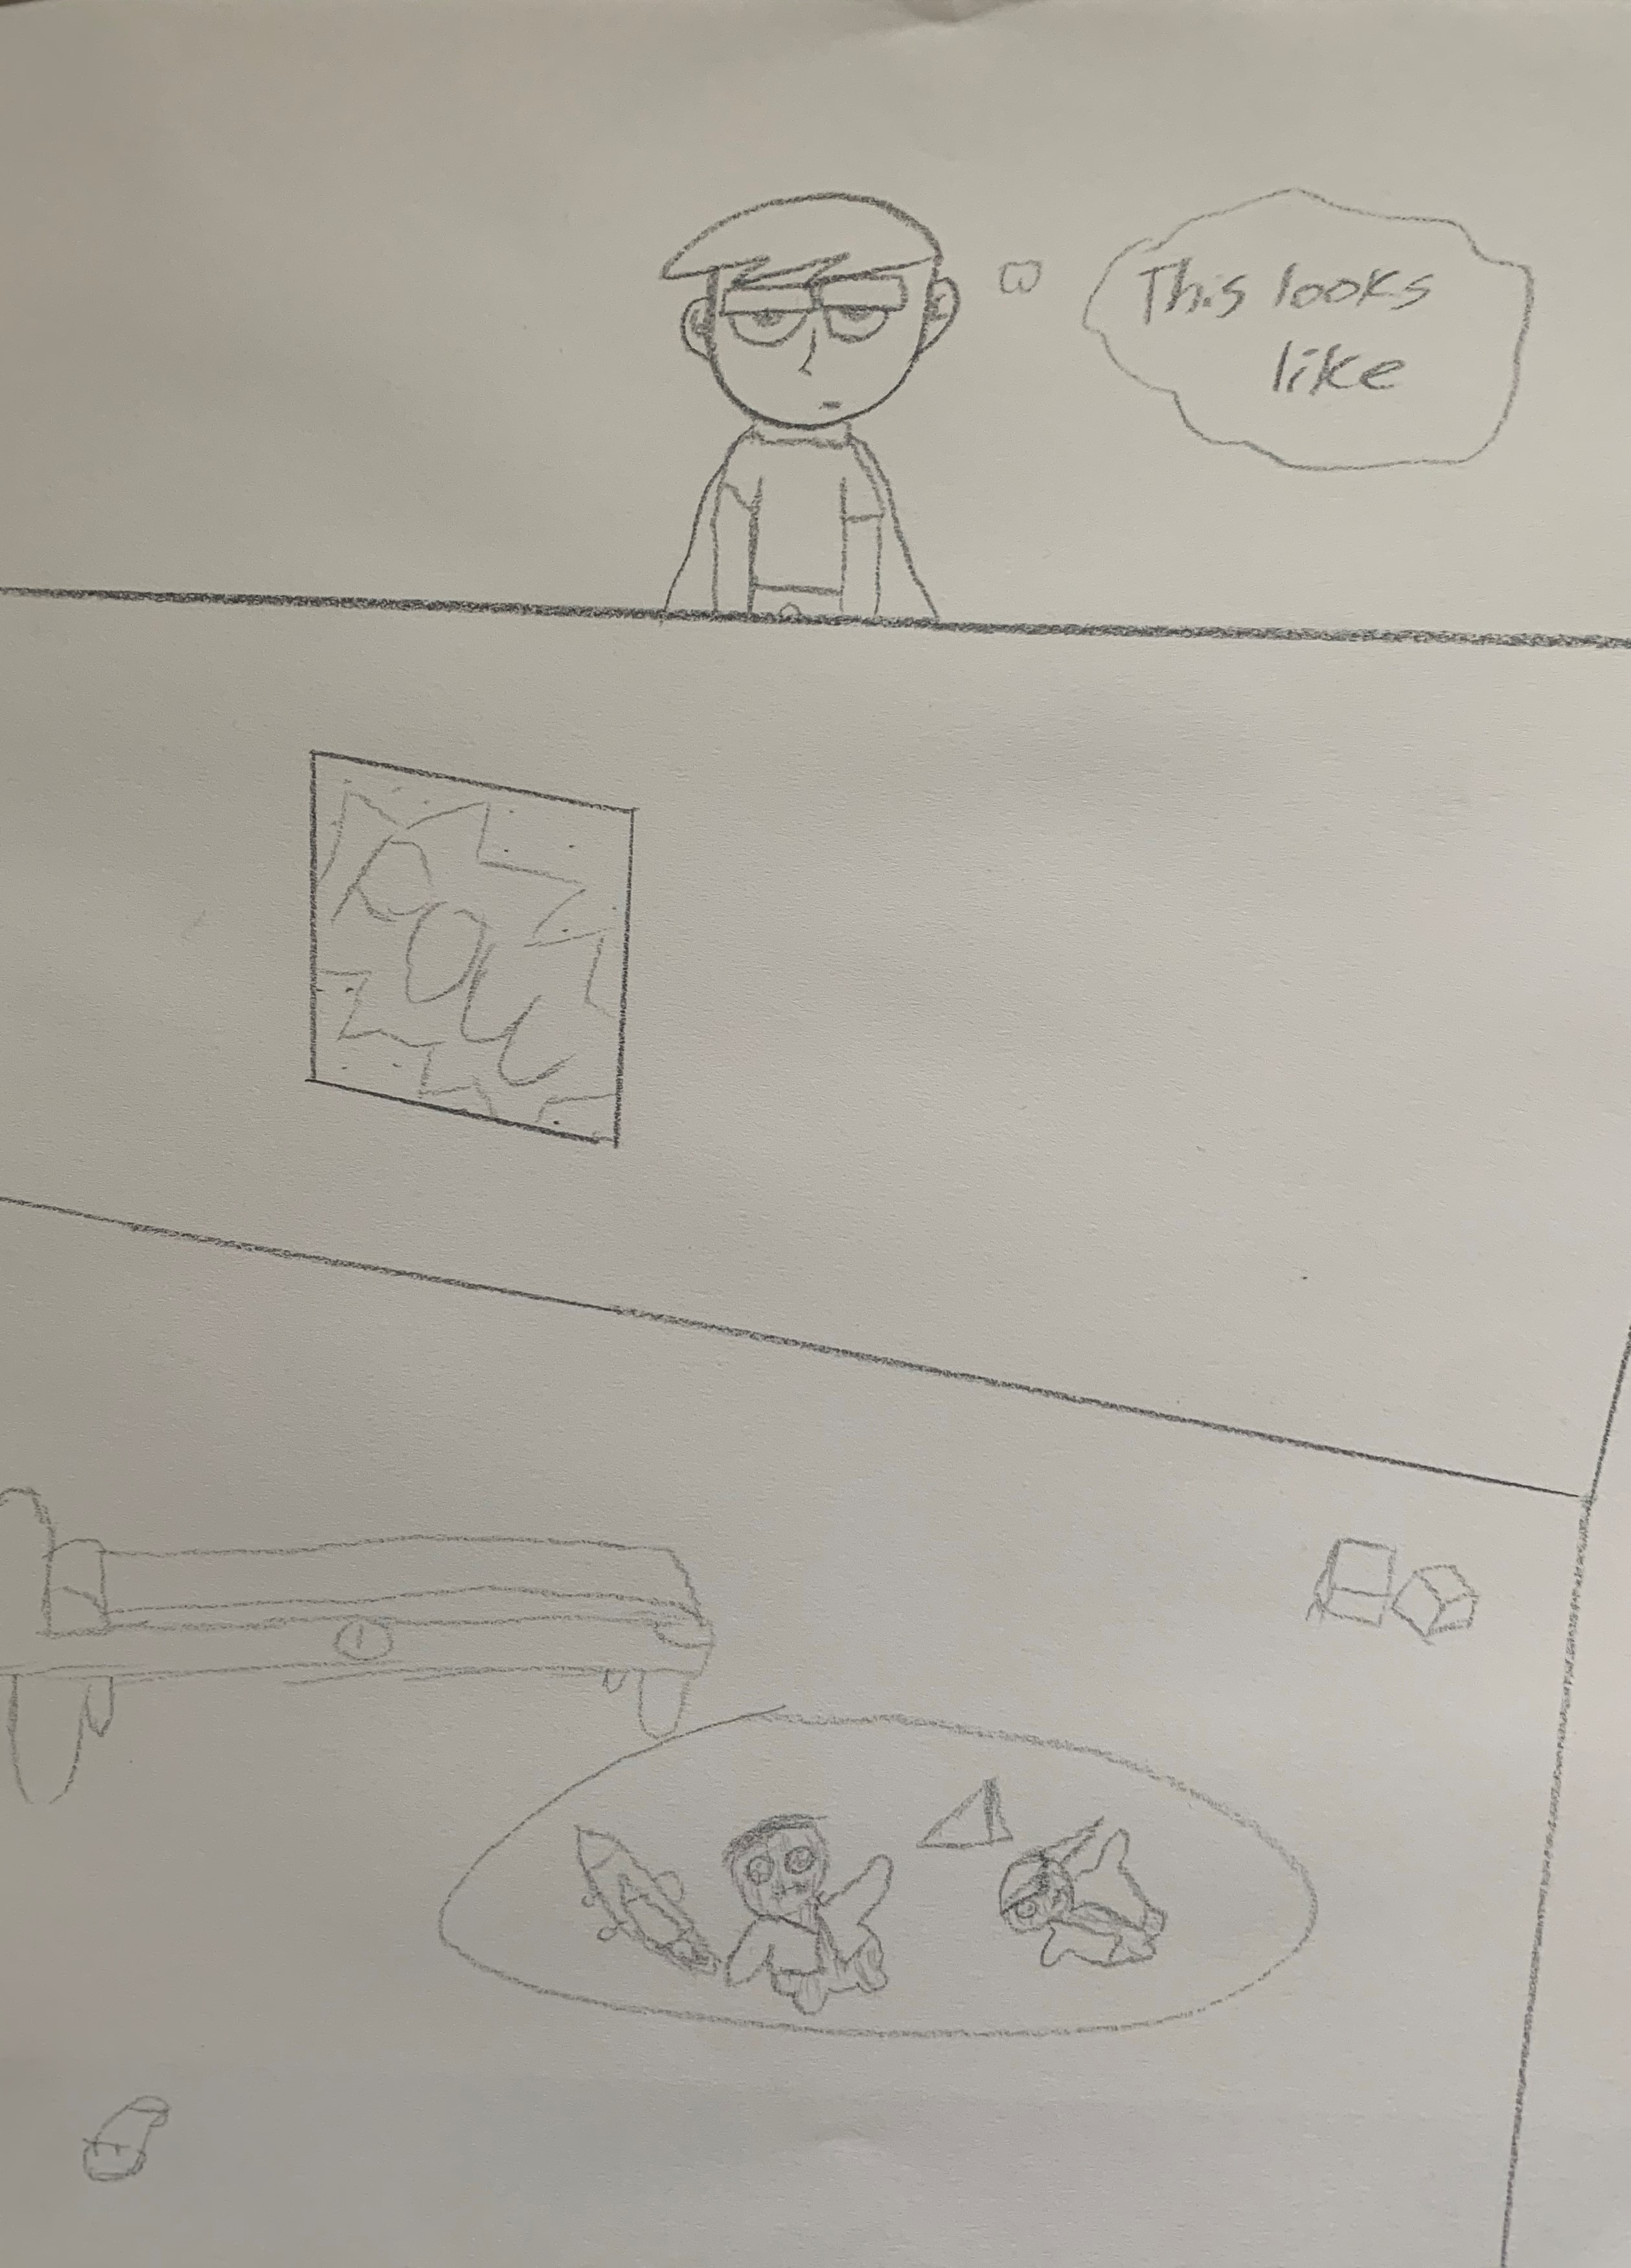 This looks
like